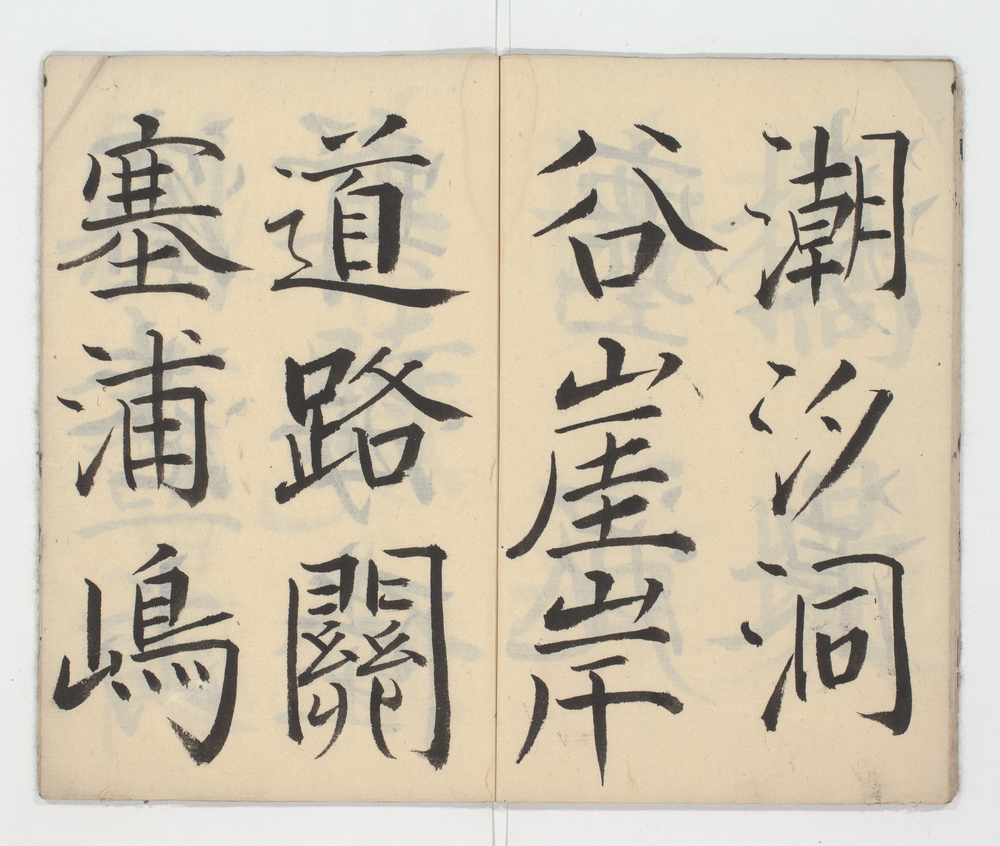 潮汐洞
谷崖岸
道路關
塞浦嶋